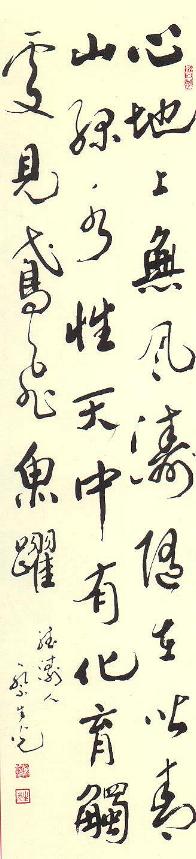 心地上無風濤隨在皆青
山綠水性天中有化育觸
處見鳶飛魚躍